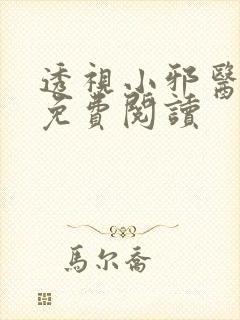 透視小邪醫
免費閱讀
馬尔喬